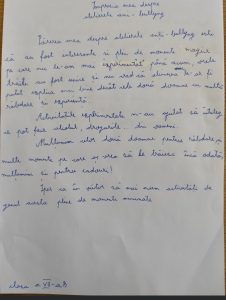 Impresia mea despre
atelierele anti-bullying
Părerea mea despre atelierele anti-bullying este
că au fost interesante și pline de momente magice
pe care nu le-am mai experimentat până acum, orele
trăite au fost unice și nu cred că altcineva le-ar fi
putut explica mai bine decât cele două doamne cu multă
răbdare și experiență.
Activitățile experimentate m-au ajutat să înțeleg
ce pot face alcoolul, drogurile... din oameni.
Mulțumim celor două doamne pentru răbdare, și
multe momente pe care aș vrea să le trăiesc încă odată,
mulțumim și pentru cadouri!
Sper ca în viitor să mai avem activități de
genul acesta pline de momente minunate
clasa a VII-a B